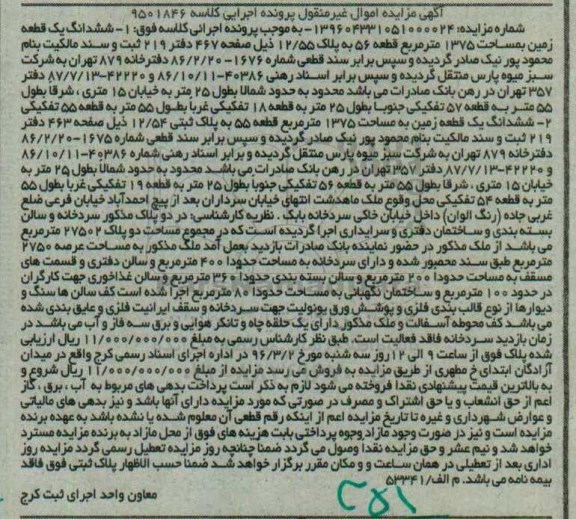 آگهی مزایده اموال غیرمنقول پرونده اجرایی کلاسه ۹۵۰۱۸۴۶
شماره مزایده: ۱۳۹۶۰۴۳۳۱۰۵۱۰۰۰۰۲۴- به موجب پرونده اجرائی کلاسه فوق: ۱- ششدانگ یک قطعه
زمین بمساحت ۱۳۷۵ مترمربع قطعه ۵۶ به پلاک ۱۲/۵۵ ذیل صفحه ۴۶۷ دفتر ۲۱۹ ثبت و سند مالکیت بنام
محمود پور نیک صادر گردیده و سپس برابر سند قطعی شماره ۱۶۷۶-۸۶/۲/۲۰ دفترخانه ۸۷۹ تهران به شرکت
سبز میوه پارس منتقل گردیده و سپس برابر اسناد رهنی ۴۰۳۸۶-۸۶/۱۰/۱۱ و ۴۲۲۲۰-۸۷/۷/۱۳ دفتر
۳۵۷ تهران در رهن بانک صادرات می باشد محدود به حدود شمالا بطول ۲۵ متر به خیابان ۱۵ متری ، شرقا بطول
۵۵ متر به قطعه ۵۷ تفکیکی جنوبا بطول ۲۵ متر به قطعه ۱۸ تفکیکی غربا بطول ۵۵ متر به قطعه ۵۵ تفکیکی
۲- ششدانگ یک قطعه زمین به مساحت ۱۳۷۵ مترمربع قطعه ۵۵ به پلاک ثبتی ۱۲/۵۴ ذیل صفحه ۴۶۳ دفتر
۲۱۹ ثبت و سند مالکیت بنام محمود پور نیک صادر گردیده و سپس برابر سند قطعی شماره ۱۶۷۵-۸۶/۲/۲۰
دفترخانه ۸۷۹ تهران به شرکت سبز میوه پارس منتقل گردیده و برابر اسناد رهنی شماره ۴۰۳۸۶-۸۶/۱۰/۱۱
و ۴۲۲۲۰-۸۷/۷/۱۳ دفتر ۳۵۷ تهران در رهن بانک صادرات می باشد محدود به حدود شمالا بطول ۲۵ متر به
خیابان ۱۵ متری ، شرقا بطول ۵۵ متر به قطعه ۵۶ تفکیکی جنوبا بطول ۲۵ متر به قطعه ۱۹ تفکیکی غربا بطول ۵۵
متر به قطعه ۵۴ تفکیکی محل وقوع ملک ماهدشت انتهای خیابان سرداران بعد از پیچ احمدآباد خیابان فرعی ضلع
غربی جاده (رنگ الوان) داخل خیابان خاکی سردخانه بابک . نظریه کارشناسی: در دو پلاک مذکور سردخانه و سالن
بسته بندی و ساختمان دفتری و سرایداری اجرا گردیده است که در مجموع مساحت دو پلاک ۲۷۵۰۲ مترمربع
می باشد از ملک مذکور در حضور نماینده بانک صادرات بازدید بعمل آمد ملک مذکور به مساحت عرصه ۲۷۵۰
مترمربع طبق سند محصور شده و دارای سردخانه به مساحت حدودا ۴۰۰ مترمربع و سالن دفتری و قسمت های
مسقف به مساحت حدودا ۲۰۰ مترمربع و سالن بسته بندی حدودا ۳۶۰ مترمربع و سالن غذاخوری جهت کارگران
در حدود ۱۰۰ مترمربع و ساختمان نگهبانی به مساحت حدودا ۸۰ مترمربع اجرا شده است کف سالن ها سنگ و
دیوارها از نوع قالب بندی فلزی و پوشش ورق یونولیت جهت سردخانه و سقف ایرانیت فلزی و عایق بندی شده
می باشد کف محوطه آسفالت و ملک مذکور دارای یک حلقه چاه و تانکر هوایی و برق سه فاز و آب می باشد در
زمان بازدید سردخانه فاقد فعالیت است. طبق نظر کارشناس رسمی به مبلغ ۱۱/۰۰۰/۰۰۰/۰۰۰ ریال ارزیابی
شده پلاک فوق از ساعت ۹ الی ۱۲ روز سه شنبه مورخ ۹۶/۳/۲ در اداره اجرای اسناد رسمی کرج واقع در میدان
آزادگان ابتدای خ مطهری از طریق مزایده به فروش می رسد مزایده از مبلغ ۱۱/۰۰۰/۰۰۰/۰۰۰ ریال شروع و
به بالاترین قیمت پیشنهادی نقدا فروخته می شود لازم به ذکر است پرداخت بدهی های مربوط به آب ، برق ، گاز
اعم از حق انشعاب و یا حق اشتراک و مصرف در صورتی که مورد مزایده دارای آنها باشد و نیز بدهی های مالیاتی
و عوارض شهرداری و غیره تا تاریخ مزایده اعم از اینکه رقم قطعی آن معلوم شده یا نشده باشد به عهده برنده
مزایده است و نیز در صورت وجود مازاد وجوه پرداختی بابت هزینه های فوق از محل مازاد به برنده مزایده مسترد
خواهد شد و نیم عشر و حق مزایده نقدا وصول می گردد ضمنا چنانچه روز مزایده تعطیل رسمی گردد مزایده روز
اداری بعد از تعطیلی در همان ساعت و و مکان مقرر برگزار خواهد شد ضمنا حسب الاظهار پلاک ثبتی فوق فاقد
بیمه نامه می باشد. م الف/۵۳۳۴۱
معاون واحد اجرای ثبت کرج